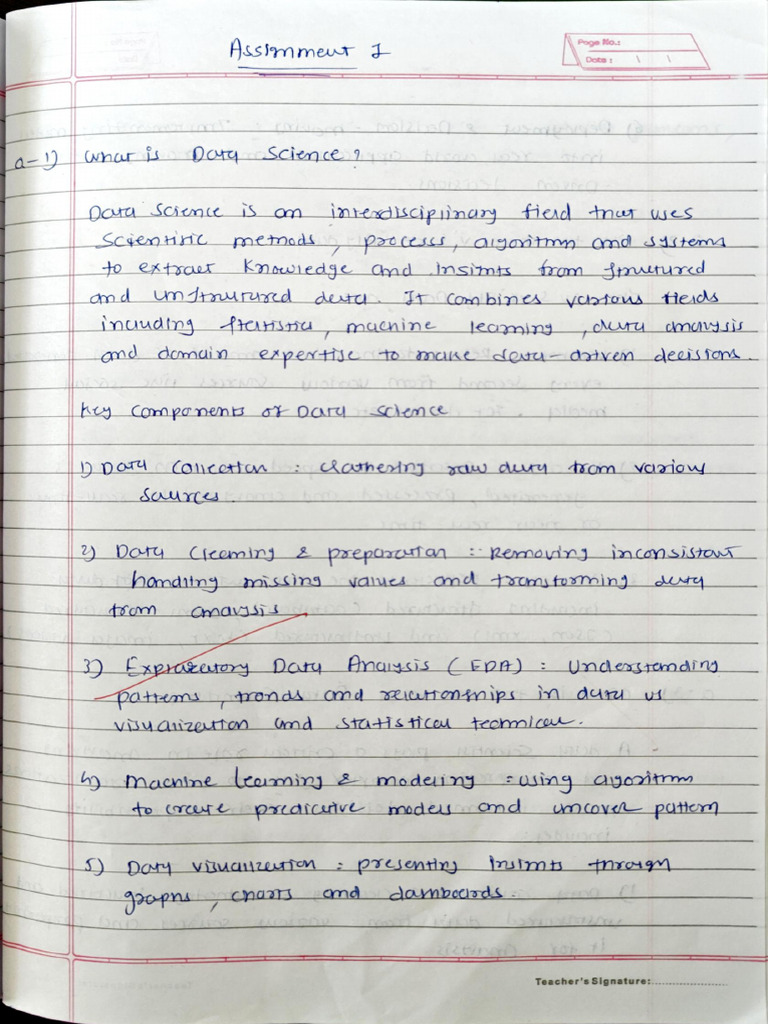 Assignment 1
Page No.:
Date :
Q-1) What is Data Science?
Data Science is an interdisciplinary field that uses
scientific methods, processs, algorithm and systems
to extract knowledge and insights from structured
and unstructured data. It combines various fields
including statistics, machine learning, data analysis
and domain expertise to make data-driven decisions.
Key components of Data Science
1) Data Collection : Gathering raw data from various
sources.
2) Data Cleaning & preparation : Removing inconsistant
handling missing values and transforming data
from analysis
3) Data Analysis (EDA) : Understanding
patterns, trands and relationships in data
visualization and statistical
4) Machine learning & modeling : using algorithm
to create predicative models and uncover pattern
5) Data visualization : presenting insights through
graphs, charts and dashboards.
Teacher's Signature:........................